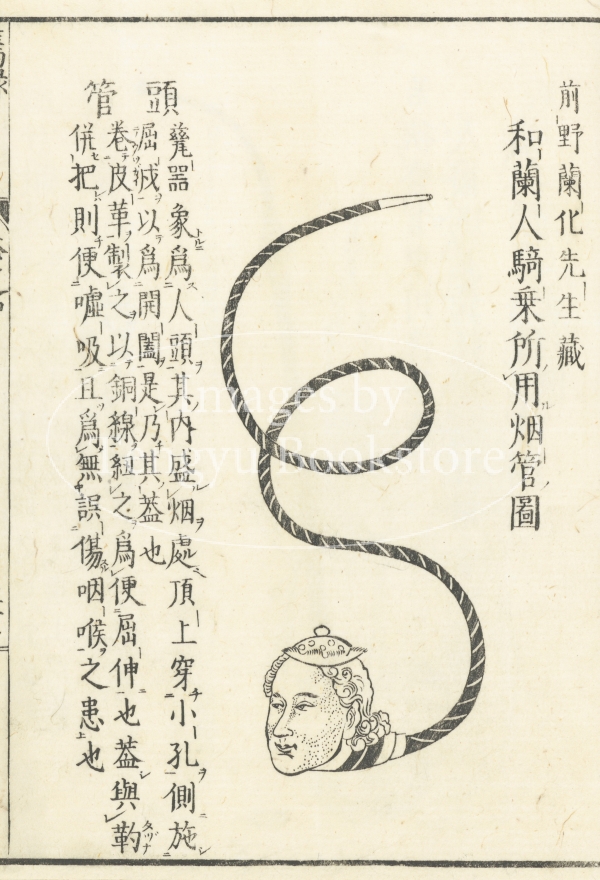 前野蘭化先生藏
和蘭人騎乗所用烟管圖
頭
甆器象爲人頭其内盛烟處頂上穿小孔側施
屈戍以爲開闔是乃其蓋也
管
卷皮革製之以銅線纒之爲便屈伸也蓋與靮
併把則便嘘吸且爲無誤傷咽喉之患也
Images by
Bookstore